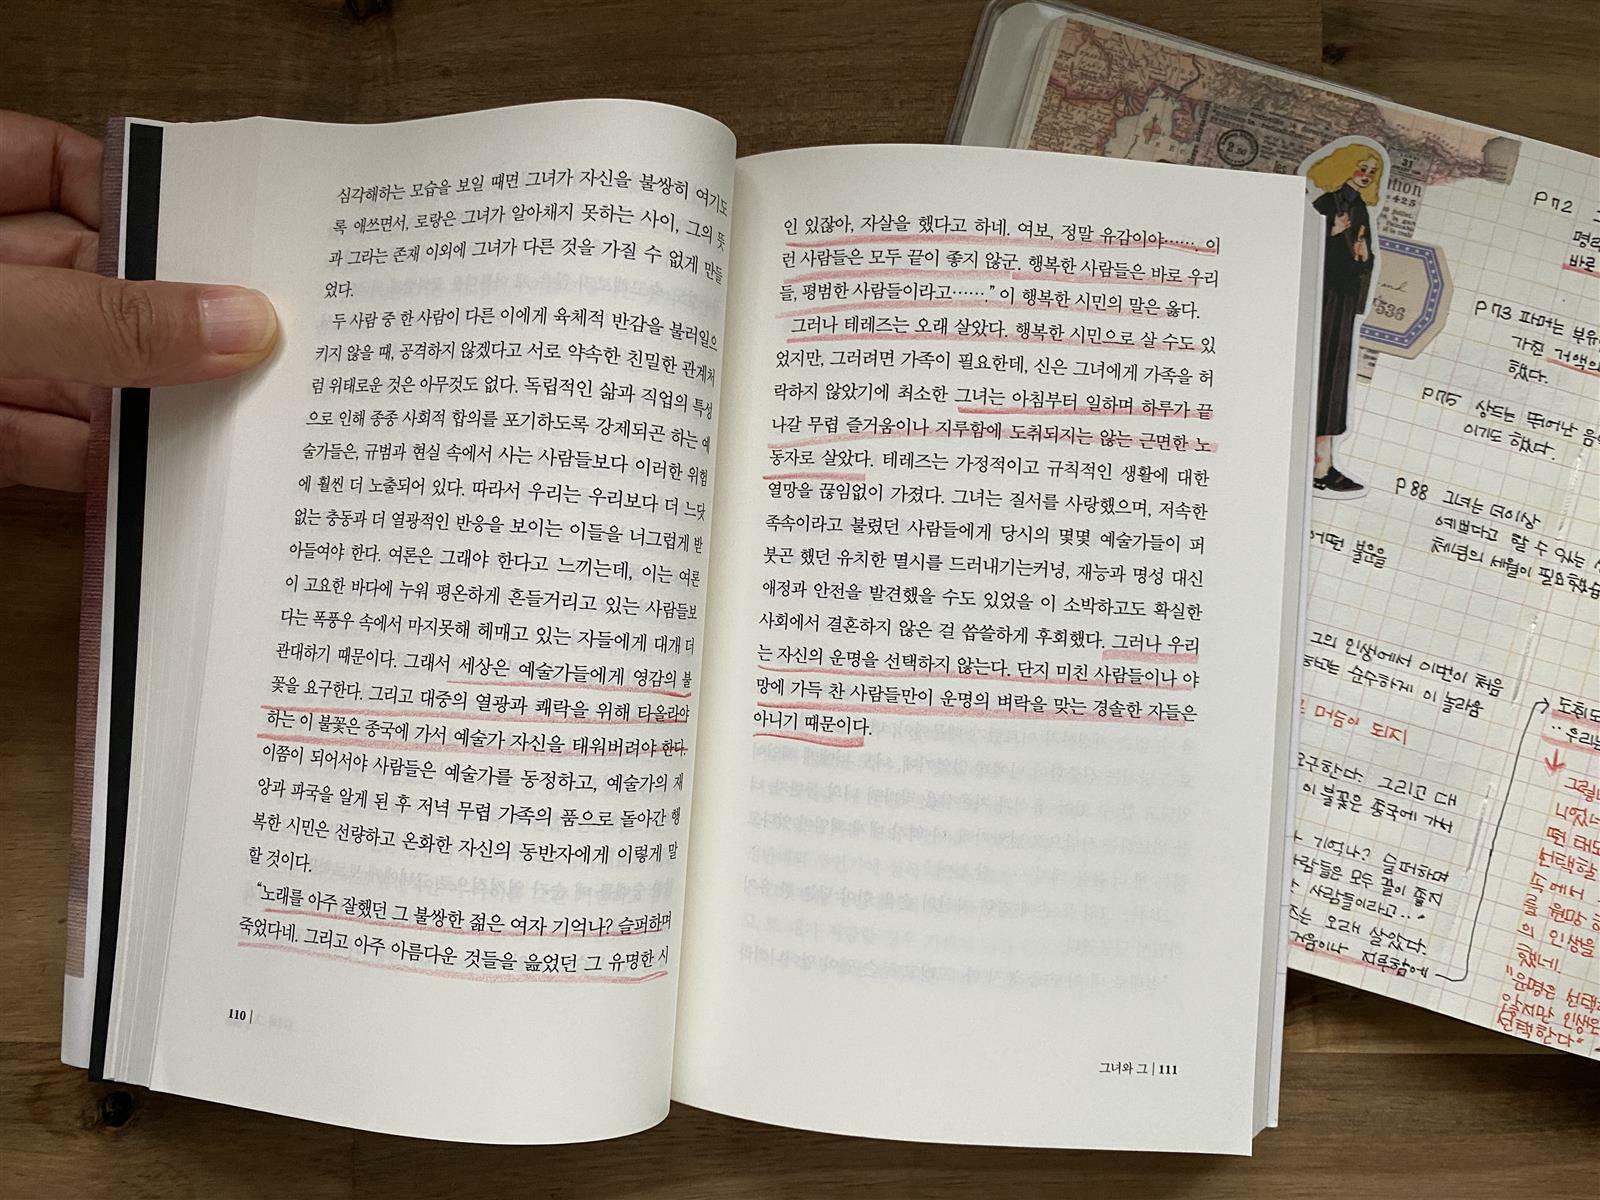 심각해하는 모습을 보일 때면 그녀가 자신을 불쌍히 여기도
록 애쓰면서, 로랑은 그녀가 알아채지 못하는 사이, 그의 뜻
과 그라는 존재 이외에 그녀가 다른 것을 가질 수 없게 만들
었다.
두 사람 중 한 사람이 다른 이에게 육체적 반감을 불러일으
키지 않을 때, 공격하지 않겠다고 서로 약속한 친밀한 관계처
럼 위태로운 것은 아무것도 없다. 독립적인 삶과 직업의 특성
으로 인해 종종 사회적 합의를 포기하도록 강제되곤 하는 예
술가들은, 규범과 현실 속에서 사는 사람들보다 이러한 위험
에 훨씬 더 노출되어 있다. 따라서 우리는 우리보다 더 느닷
없는 충동과 더 열광적인 반응을 보이는 이들을 너그럽게 받
아들여야 한다. 여론은 그래야 한다고 느끼는데, 이는 여론
이 고요한 바다에 누워 평온하게 흔들거리고 있는 사람들보
다는 폭풍우 속에서 마지못해 헤매고 있는 자들에게 대개 더
관대하기 때문이다. 그래서 세상은 예술가들에게 영감의 불
꽃을 요구한다. 그리고 대중의 열광과 쾌락을 위해 타올라야
하는 이 불꽃은 종국에 가서 예술가 자신을 태워버려야 한다.
이쯤이 되어서야 사람들은 예술가를 동정하고, 예술가의 재
앙과 파국을 알게 된 후 저녁 무렵 가족의 품으로 돌아간 행
복한 시민은 선량하고 온화한 자신의 동반자에게 이렇게 말
할 것이다.
“노래를 아주 잘했던 그 불쌍한 젊은 여자 기억나? 슬퍼하며
죽었다네. 그리고 아주 아름다운 것들을 읊었던 그 유명한 시
110 |
인 있잖아, 자살을 했다고 하네. 여보, 정말 유감이야…… 이
런 사람들은 모두 끝이 좋지 않군. 행복한 사람들은 바로 우리
들, 평범한 사람들이라고…….” 이 행복한 시민의 말은 옳다.
그러나 테레즈는 오래 살았다. 행복한 시민으로 살 수도 있
었지만, 그러려면 가족이 필요한데, 신은 그녀에게 가족을 허
락하지 않았기에 최소한 그녀는 아침부터 일하며 하루가 끝
나갈 무렵 즐거움이나 지루함에 도취되지는 않는 근면한 노
동자로 살았다. 테레즈는 가정적이고 규칙적인 생활에 대한
열망을 끊임없이 가졌다. 그녀는 질서를 사랑했으며, 저속한
족속이라고 불렀던 사람들에게 당시의 몇몇 예술가들이 퍼
붓곤 했던 유치한 멸시를 드러내기는커녕, 재능과 명성 대신
애정과 안전을 발견했을 수도 있었을 이 소박하고도 확실한
사회에서 결혼하지 않은 걸 씁쓸하게 후회했다. 그러나 우리
는 자신의 운명을 선택하지 않는다. 단지 미친 사람들이나 야
망에 가득 찬 사람들만이 운명의 벼락을 맞는 경솔한 자들은
아니기 때문이다.
그녀와 그 | 111
p72
바로
p73 파머는 부유
가진 거액의
했다.
p75 상드는 뛰어난 음
이기도 했다.
p88 그녀는 더이상
예쁘다고 할 수 있는
체념의 세월이 필요했
어떤 불운을
그의 인생에서 이번이 처음
순수하게 이 놀라움
머슴이 되지
요구한다. 그리고 대
이 불꽃은 종국에 가서
기억나? 슬퍼하며
사람들은 모두 끝이 좋지
사람들이라고‥"
즈는 오래 살았다.
거움이나 지루함에
→ 도취되
‥우리는
선택할
속에서
를 원망
의 인생을
했네.
"운명은 선택
않지만 인생은
선택한다"